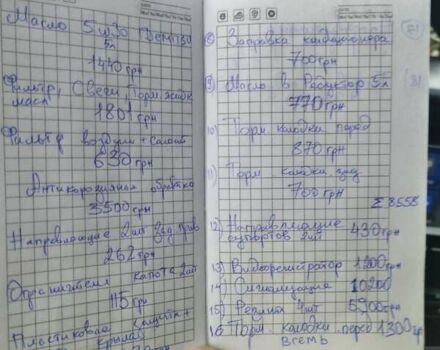 Масло 5w30
5л
1440 грн
Фильтр, Свечи, Торм. жидк
масл
1801 грн
Фильтр воздушн + салон
630 грн
Антикорозийная обработка
3500 грн
Направляющие 2шт зад
262 грн
Ограничители капота 2шт
115 грн
Пластиковая защита +
8) Заправка кондиционера
700 грн
9) Масло в Редуктор 5л
770 грн
10) Торм колодки перед
870 грн
11) Торм колодки зад.
700 грн
Σ 8558
12) Направляющие
суппортов 2шт 430 грн
13) Видеорегистратор 1200 грн
14) Сигнализация 10200
15) Резина 4шт 5900 грн
16 Торм. колодки перед 1300 грн